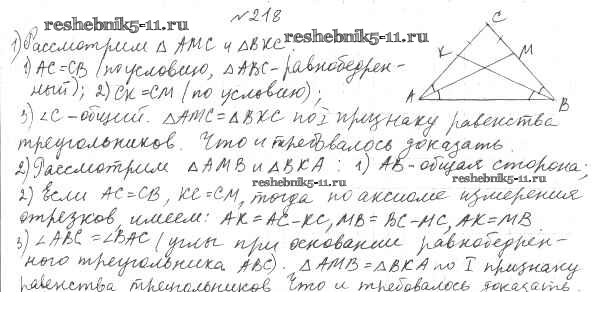 №218
reshebnik5-11.ru
C
1) Рассмотрим △ AMC и △BKC.
reshebnik5-11.ru
1) AC=CB (по условию, △ABC-равнобедрен-
K M
ный); 2) CK=CM (по условию);
A B
3) ∠C-общий. △AMC=△BKC по I признаку равенства
треугольников. Что и требовалось доказать.
2) Рассмотрим △AMB и △BKA: 1) AB-общая сторона;
reshebnik5-11.ru reshebnik5-11.ru
2) Если AC=CB, KC=CM, тогда по аксиоме измерения
отрезков, имеем: AK=AC-KC, MB=BC-MC, AK=MB
3) ∠ABC=∠BAC (углы при основании равнобедрен-
ного треугольника ABC). △AMB=△BKA по I признаку
равенства треугольников Что и требовалось доказать.
reshebnik5-11.ru